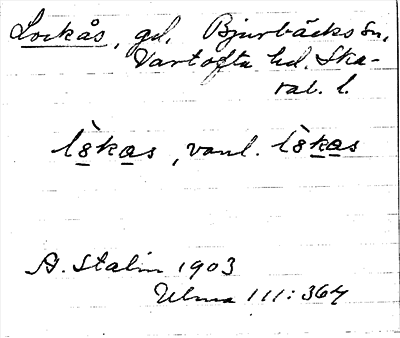 Lockås, gd, Bjurbäcks sn,
Vartofta hd. Ska-
rab. l.
lòkas, vanl. lòkas
A. Stalin 1903
Ulma 111:364